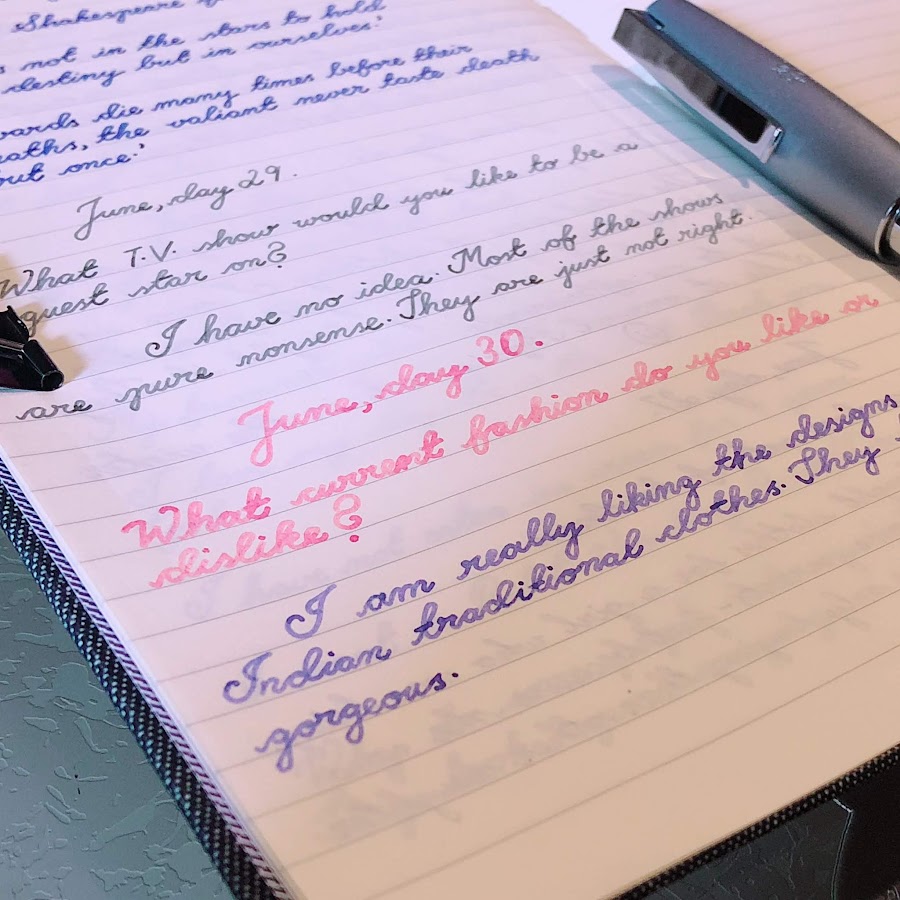 Shakespeare
not in the stars to hold
destiny but in ourselves.'
die many times before their
the valiant never taste death
but once.'
June, day 29.
What T.V. show would you like to be a
guest star on?
I have no idea. Most of the shows
are pure nonsense. They are just not right.
June, day 30.
What current fashion do you like or
dislike?
I am really liking the designs,
Indian traditional clothes. They
gorgeous.